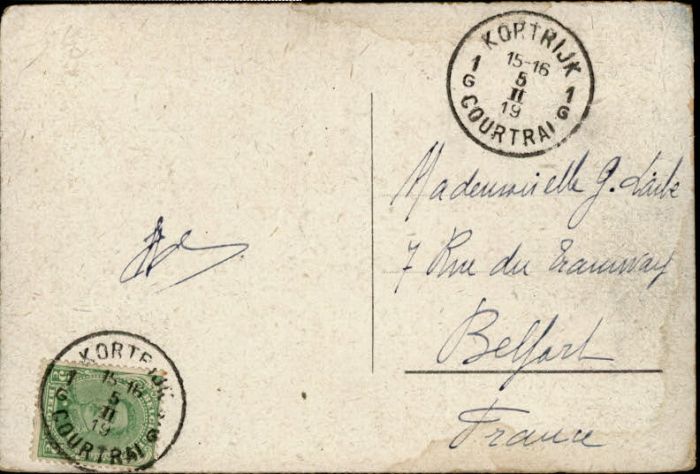 KORTRIJK
15-16
1 5 1
G II G
19
COURTRAI
Mademoiselle G.
7 Rue du Tramway
Belfort
France
KORTRIJK
15-16
1 5
G II G
19
COURTRAI